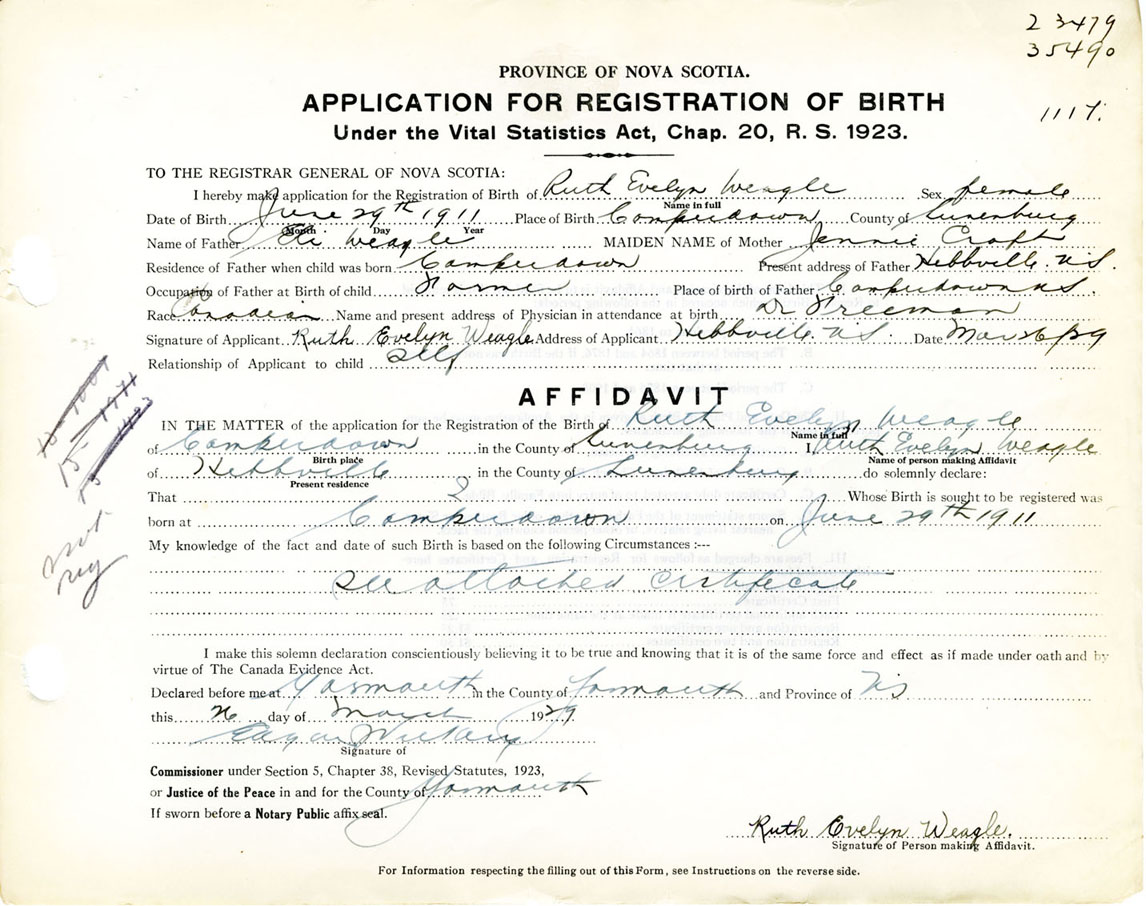 23479
35490
1117.
PROVINCE OF NOVA SCOTIA.
APPLICATION FOR REGISTRATION OF BIRTH
Under the Vital Statistics Act, Chap. 20, R. S. 1923.
TO THE REGISTRAR GENERAL OF NOVA SCOTIA:
I hereby make application for the Registration of Birth of Ruth Evelyn Weagle Sex female
Name in full
Date of Birth June 29th 1911 Place of Birth Camperdown County of Lunenburg
Month Day Year
Name of Father Eli Weagle MAIDEN NAME of Mother Jennie Croft
Residence of Father when child was born Camperdown Present address of Father Hebbville N.S.
Occupation of Father at Birth of child Farmer Place of birth of Father Camperdown N.S.
Race Canadian Name and present address of Physician in attendance at birth Dr Freeman
Signature of Applicant Ruth Evelyn Weagle Address of Applicant Hebbville N.S. Date Mar 26/29
Relationship of Applicant to child Self
AFFIDAVIT
IN THE MATTER of the application for the Registration of the Birth of Ruth Evelyn Weagle
Name in full
of Camperdown in the County of Lunenburg I, Ruth Evelyn Weagle
Birth place Name of person making Affidavit
of Hebbville in the County of Lunenburg do solemnly declare:
Present residence
That I Whose Birth is sought to be registered was
born at Camperdown on June 29th 1911
My knowledge of the fact and date of such Birth is based on the following Circumstances :---
See attached certificate
I make this solemn declaration conscientiously believing it to be true and knowing that it is of the same force and effect as if made under oath and by
virtue of The Canada Evidence Act.
Declared before me at Yarmouth in the County of Yarmouth and Province of NS
this 26 day of March 1929
Signature of
Commissioner under Section 5, Chapter 38, Revised Statutes, 1923,
or Justice of the Peace in and for the County of Yarmouth
If sworn before a Notary Public affix seal.
Ruth Evelyn Weagle.
Signature of Person making Affidavit.
For Information respecting the filling out of this Form, see Instructions on the reverse side.
not
reg